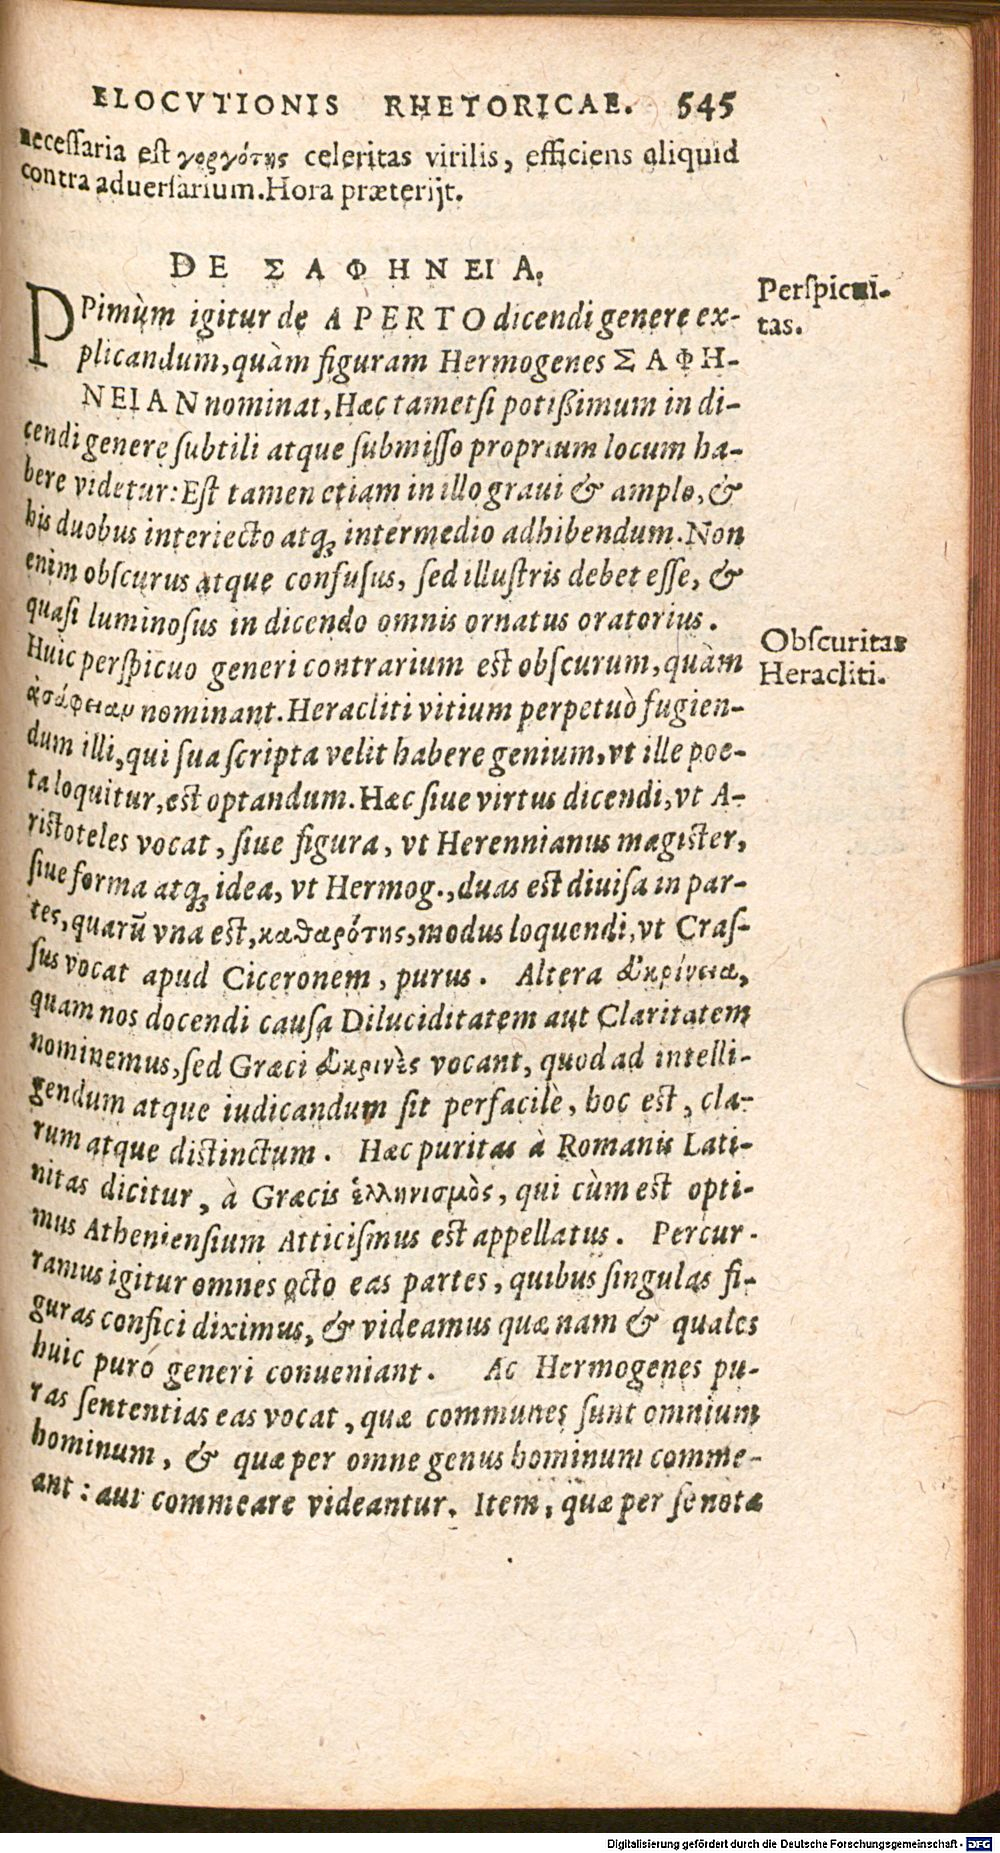 ELOCVTIONIS RHETORICAE. 545
necessaria est γοργότης celeritas virilis, efficiens aliquid
contra aduersarium. Hora præterijt.
DE ΣΑΦΗΝΕΙΑ.
Perspicui-
tas.
PPimùm igitur de APERTO dicendi genere ex-
plicandum, quàm figuram Hermogenes ΣΑΦΗ-
ΝΕΙΑΝ nominat, Hæc tametsi potißimum in di-
cendi genere subtili atque submisso proprium locum ha-
bere videtur: Est tamen etiam in illo graui & amplo, &
his duobus interiecto atq; intermedio adhibendum. Non
enim obscurus atque confusus, sed illustris debet esse, &
quasi luminosus in dicendo omnis ornatus oratorius.
Obscuritas
Heracliti.
Huic perspicuo generi contrarium est obscurum, quàm
ἀσάφειαν nominant. Heracliti vitium perpetuò fugien-
dum illi, qui sua scripta velit habere genium, vt ille poe-
ta loquitur, est optandum. Hæc siue virtus dicendi, vt A-
ristoteles vocat, siue figura, vt Herennianus magister,
siue forma atq; idea, vt Hermog., duas est diuisa in par-
tes, quarū vna est, καθαρότης, modus loquendi, vt Cras-
sus vocat apud Ciceronem, purus. Altera εὐκρίνεια,
quam nos docendi causa Diluciditatem aut Claritatem
nominemus, sed Græci εὐκρινὲς vocant, quod ad intelli-
gendum atque iudicandum sit perfacilè, hoc est, cla-
rum atque distinctum. Hæc puritas à Romanis Lati-
nitas dicitur, à Græcis ἑλληνισμὸς, qui cùm est opti-
mus Atheniensium Atticismus est appellatus. Percur-
ramus igitur omnes octo eas partes, quibus singulas fi-
guras confici diximus, & videamus quænam & quales
huic puro generi conueniant. Ac Hermogenes pu-
ras sententias eas vocat, quæ communes sunt omnium
hominum, & quæ per omne genus hominum comme-
ant: aut commeare videantur. Item, quæ per se notæ
Digitalisierung gefördert durch die Deutsche Forschungsgemeinschaft - DFG